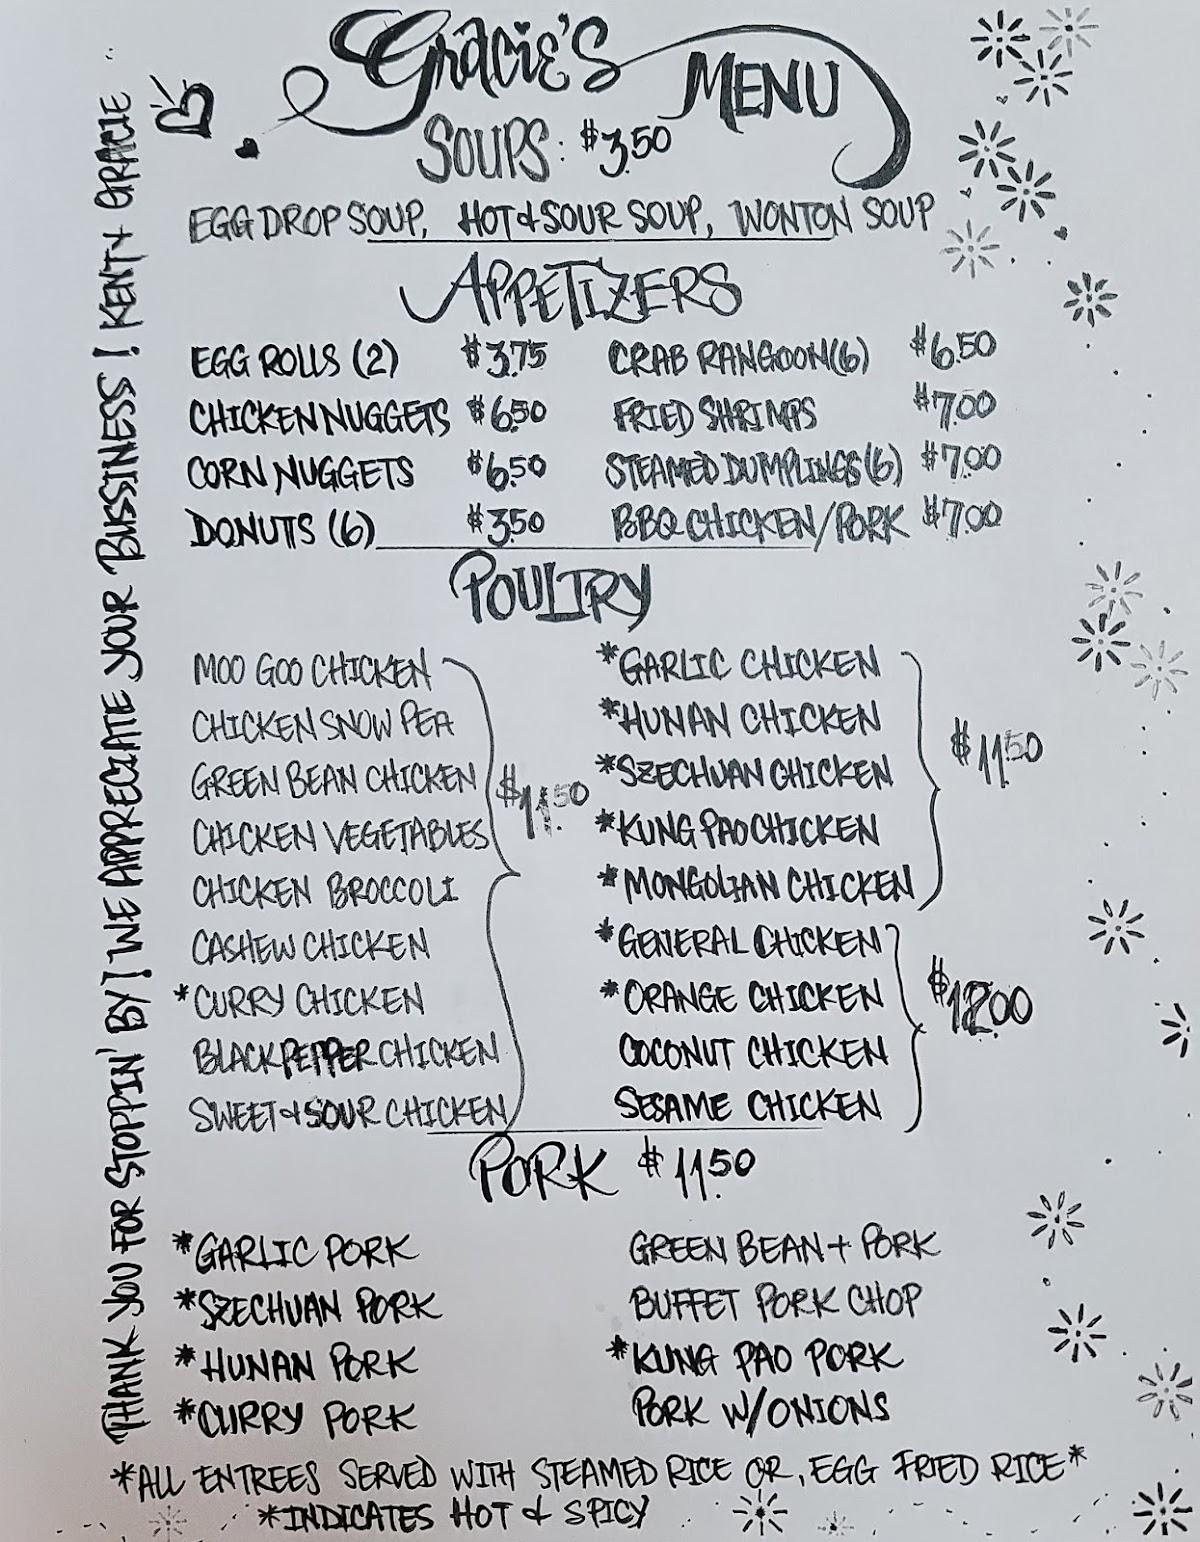 Gracie's MENU
SOUPS: $3.50
EGG DROP SOUP, HOT & SOUR SOUP, WONTON SOUP
APPETIZERS
EGG ROLLS (2) $3.75 CRAB RANGOON (6) $6.50
CHICKEN NUGGETS $6.50 FRIED SHRIMPS $7.00
CORN NUGGETS $6.50 STEAMED DUMPLINGS (6) $7.00
DONUTS (6) $3.50 BBQ CHICKEN/PORK $7.00
POULTRY
MOO GOO CHICKEN
CHICKEN SNOW PEA
GREEN BEAN CHICKEN
CHICKEN VEGETABLES
CHICKEN BROCCOLI
CASHEW CHICKEN
*CURRY CHICKEN
BLACK PEPPER CHICKEN
SWEET & SOUR CHICKEN
$11.50
*GARLIC CHICKEN
*HUNAN CHICKEN
*SZECHUAN CHICKEN
*KUNG PAO CHICKEN
*MONGOLIAN CHICKEN
$11.50
*GENERAL CHICKEN
*ORANGE CHICKEN
COCONUT CHICKEN
SESAME CHICKEN
$12.00
PORK $11.50
*GARLIC PORK
*SZECHUAN PORK
*HUNAN PORK
*CURRY PORK
GREEN BEAN + PORK
BUFFET PORK CHOP
*KUNG PAO PORK
PORK W/ONIONS
*ALL ENTREES SERVED WITH STEAMED RICE OR, EGG FRIED RICE*
*INDICATES HOT & SPICY
THANK YOU FOR STOPPIN' BY! WE APPRECIATE YOUR BUSSINESS! KENT + GRACIE